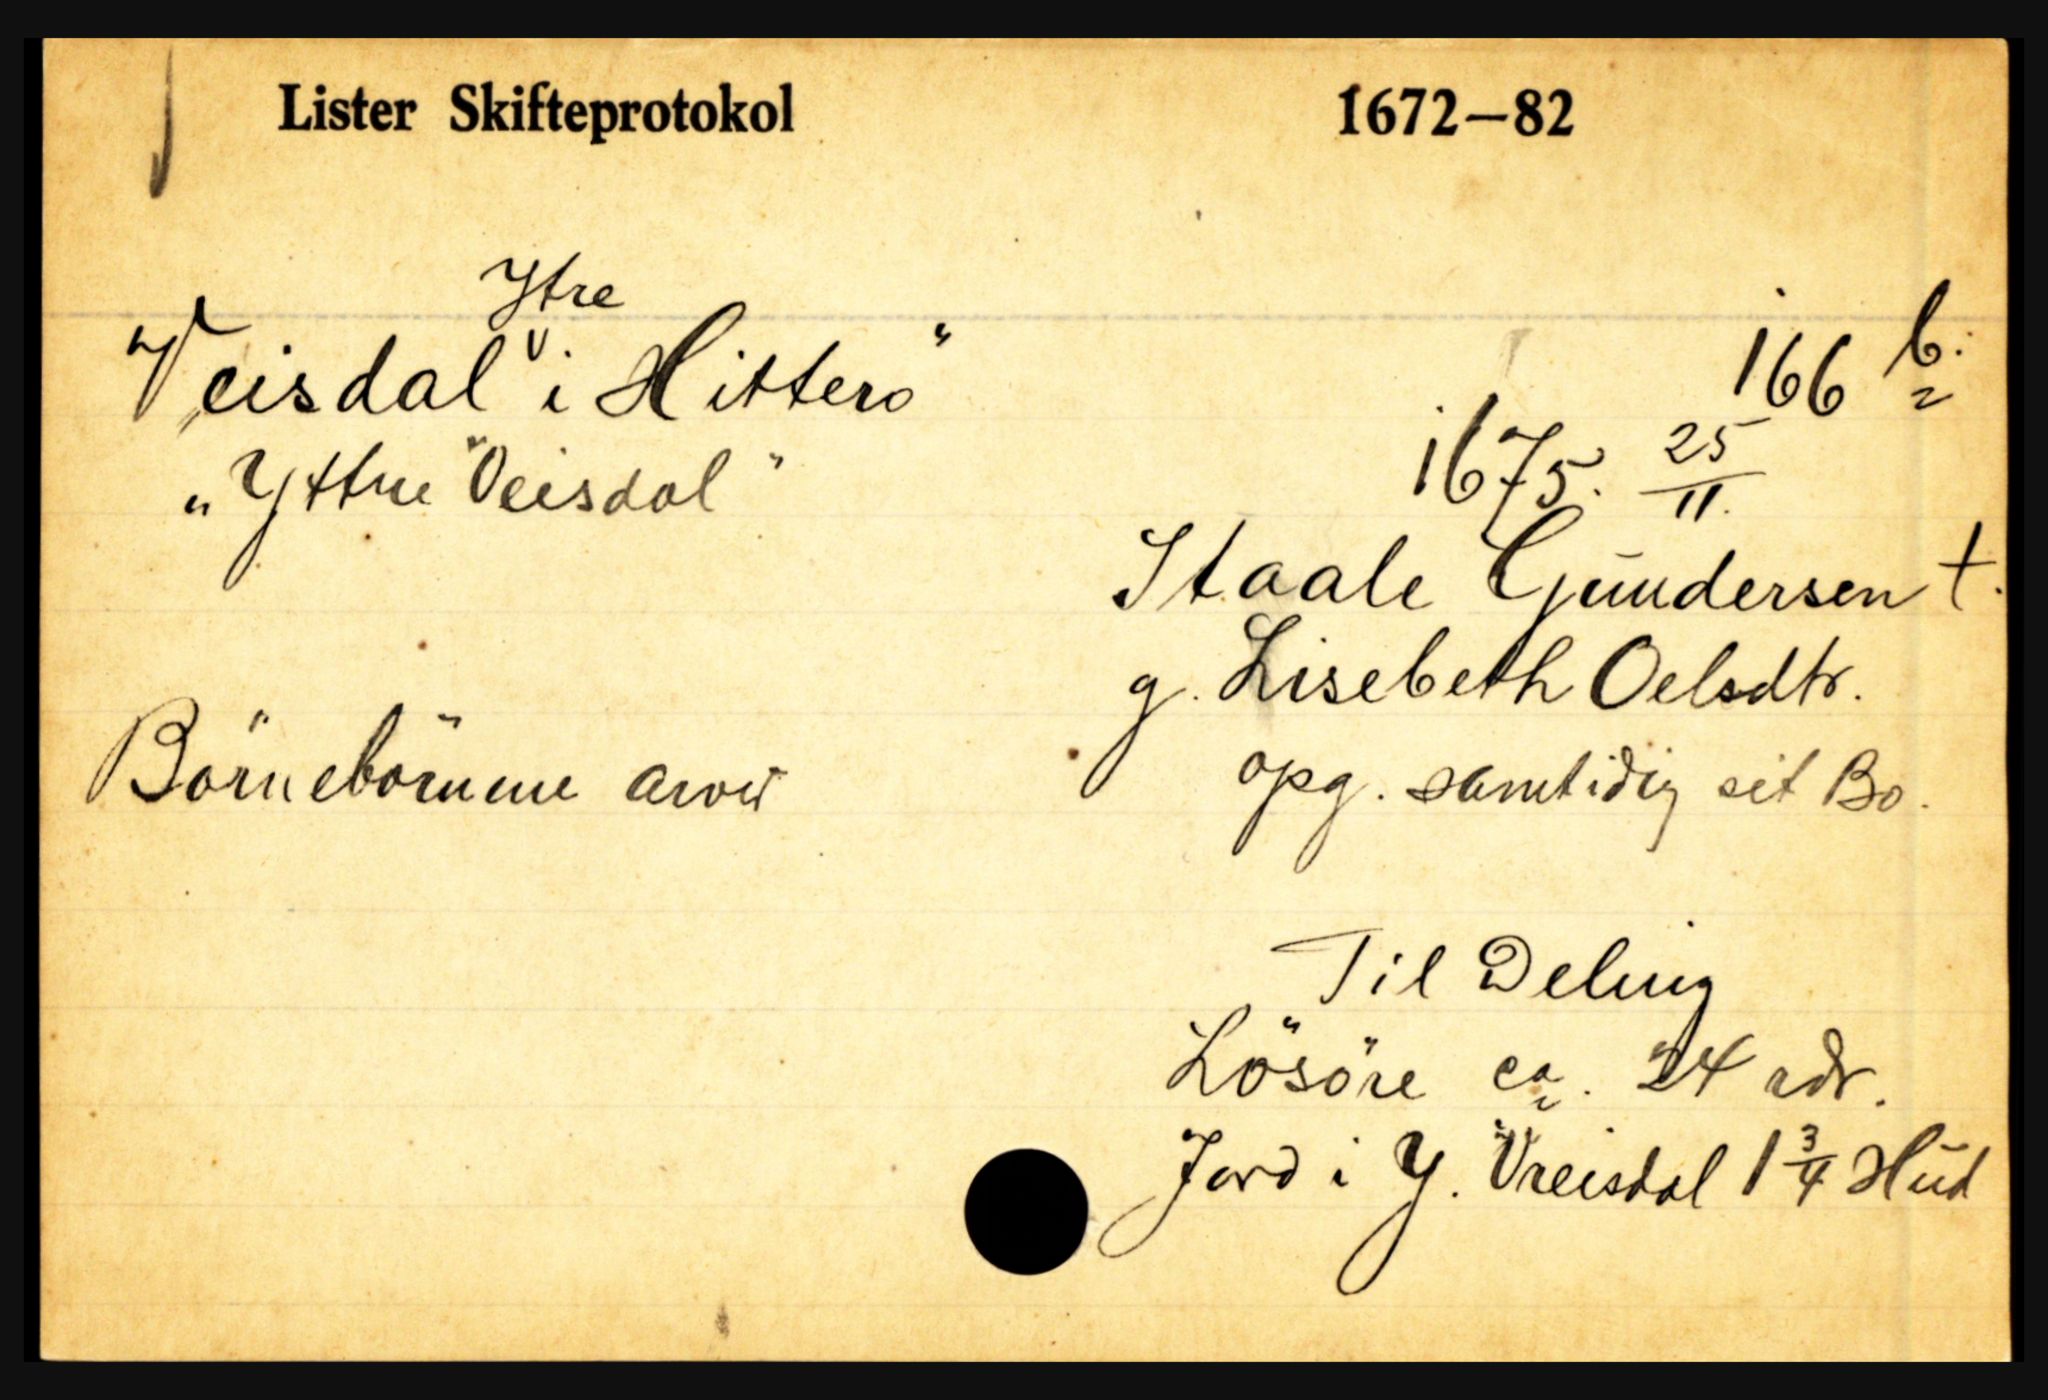 Lister Skifteprotokol 1672–82
Ytre
"Veisdal i Hitterø"
166 b.
„Yttre Veisdal"
1675. 25/11.
Staale Gundersen †.
g. Lisebeth Oelsdtr.
Börnebörnene arver
opg. samtidig sit Bo.
Til Deling
Lösöre ca. 24 rdr.
Jord i Y. Vreisdal 1 3/4 Hud